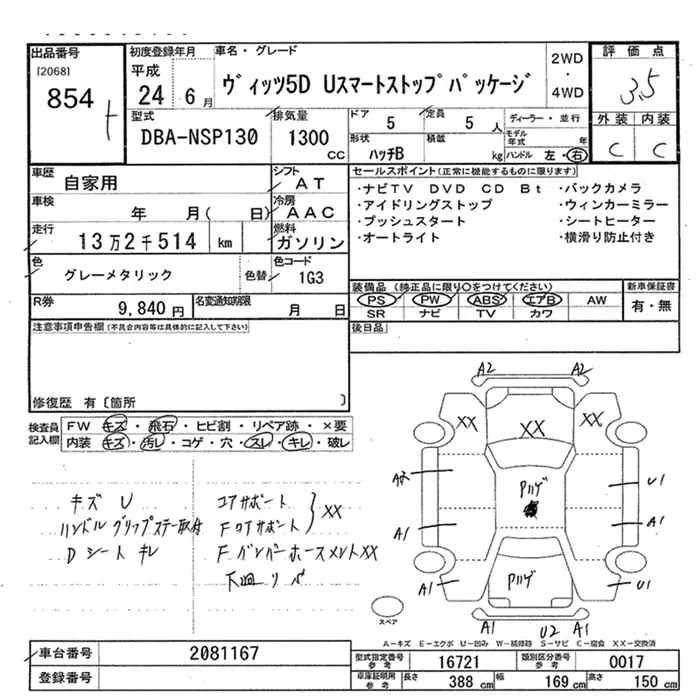 出品番号
[2068]
854
初度登録年月
平成
24 6月
車名・グレード
ヴィッツ5D Uスマートストップパッケージ
2WD
・
4WD
評価点
3.5
外装 内装
C C
型式
DBA-NSP130
排気量
1300
CC
ドア
5
定員
5人
形状
ハッチB
積載
kg
ディーラー・並行
モデル年式 年
ハンドル 左・右
車歴
自家用
シフト
AT
車検
年 月( 日)
冷房
AAC
走行
13万2千514 km
燃料
ガソリン
色
グレーメタリック
色替
色コード
1G3
R券
9,840円
名変通知期限
月 日
セールスポイント(正常に機能するものに限ります)
・ナビTV DVD CD Bt ・バックカメラ
・アイドリングストップ ・ウィンカーミラー
・プッシュスタート ・シートヒーター
・オートライト ・横滑り防止付き
装備品(純正品に限り○をつけてください)
新車保証書
PS PW ABS エアB AW
SR ナビ TV カワ
有・無
後日品
注意事項申告欄(不具合内容等は具体的に記入して下さい)
修復歴 有〔箇所 〕
検査員記入欄
FW キズ・飛石・ヒビ割・リペア跡・×要
内装 キズ・汚レ・コゲ・穴・スレ・キレ・破レ
キズ U
ハンドル グリップステー取付
Dシート キレ
コアサポート
FコアサポートXX
Fバンパーホースメント XX
下廻リ サビ
A2 A2
XX XX XX
A2 Pハゲ U1
A1 A1
A1 Pハゲ U1
A1 U2 A1
スペア
A−キズ E−エクボ U−凹み W−補修跡 S−サビ C−腐食 XX−交換済
車台番号
2081167
登録番号
型式指定番号
参考
16721
類別区分番号
参考
0017
車庫証明用
参考
長さ 388 cm
幅 169 cm
高さ 150 cm